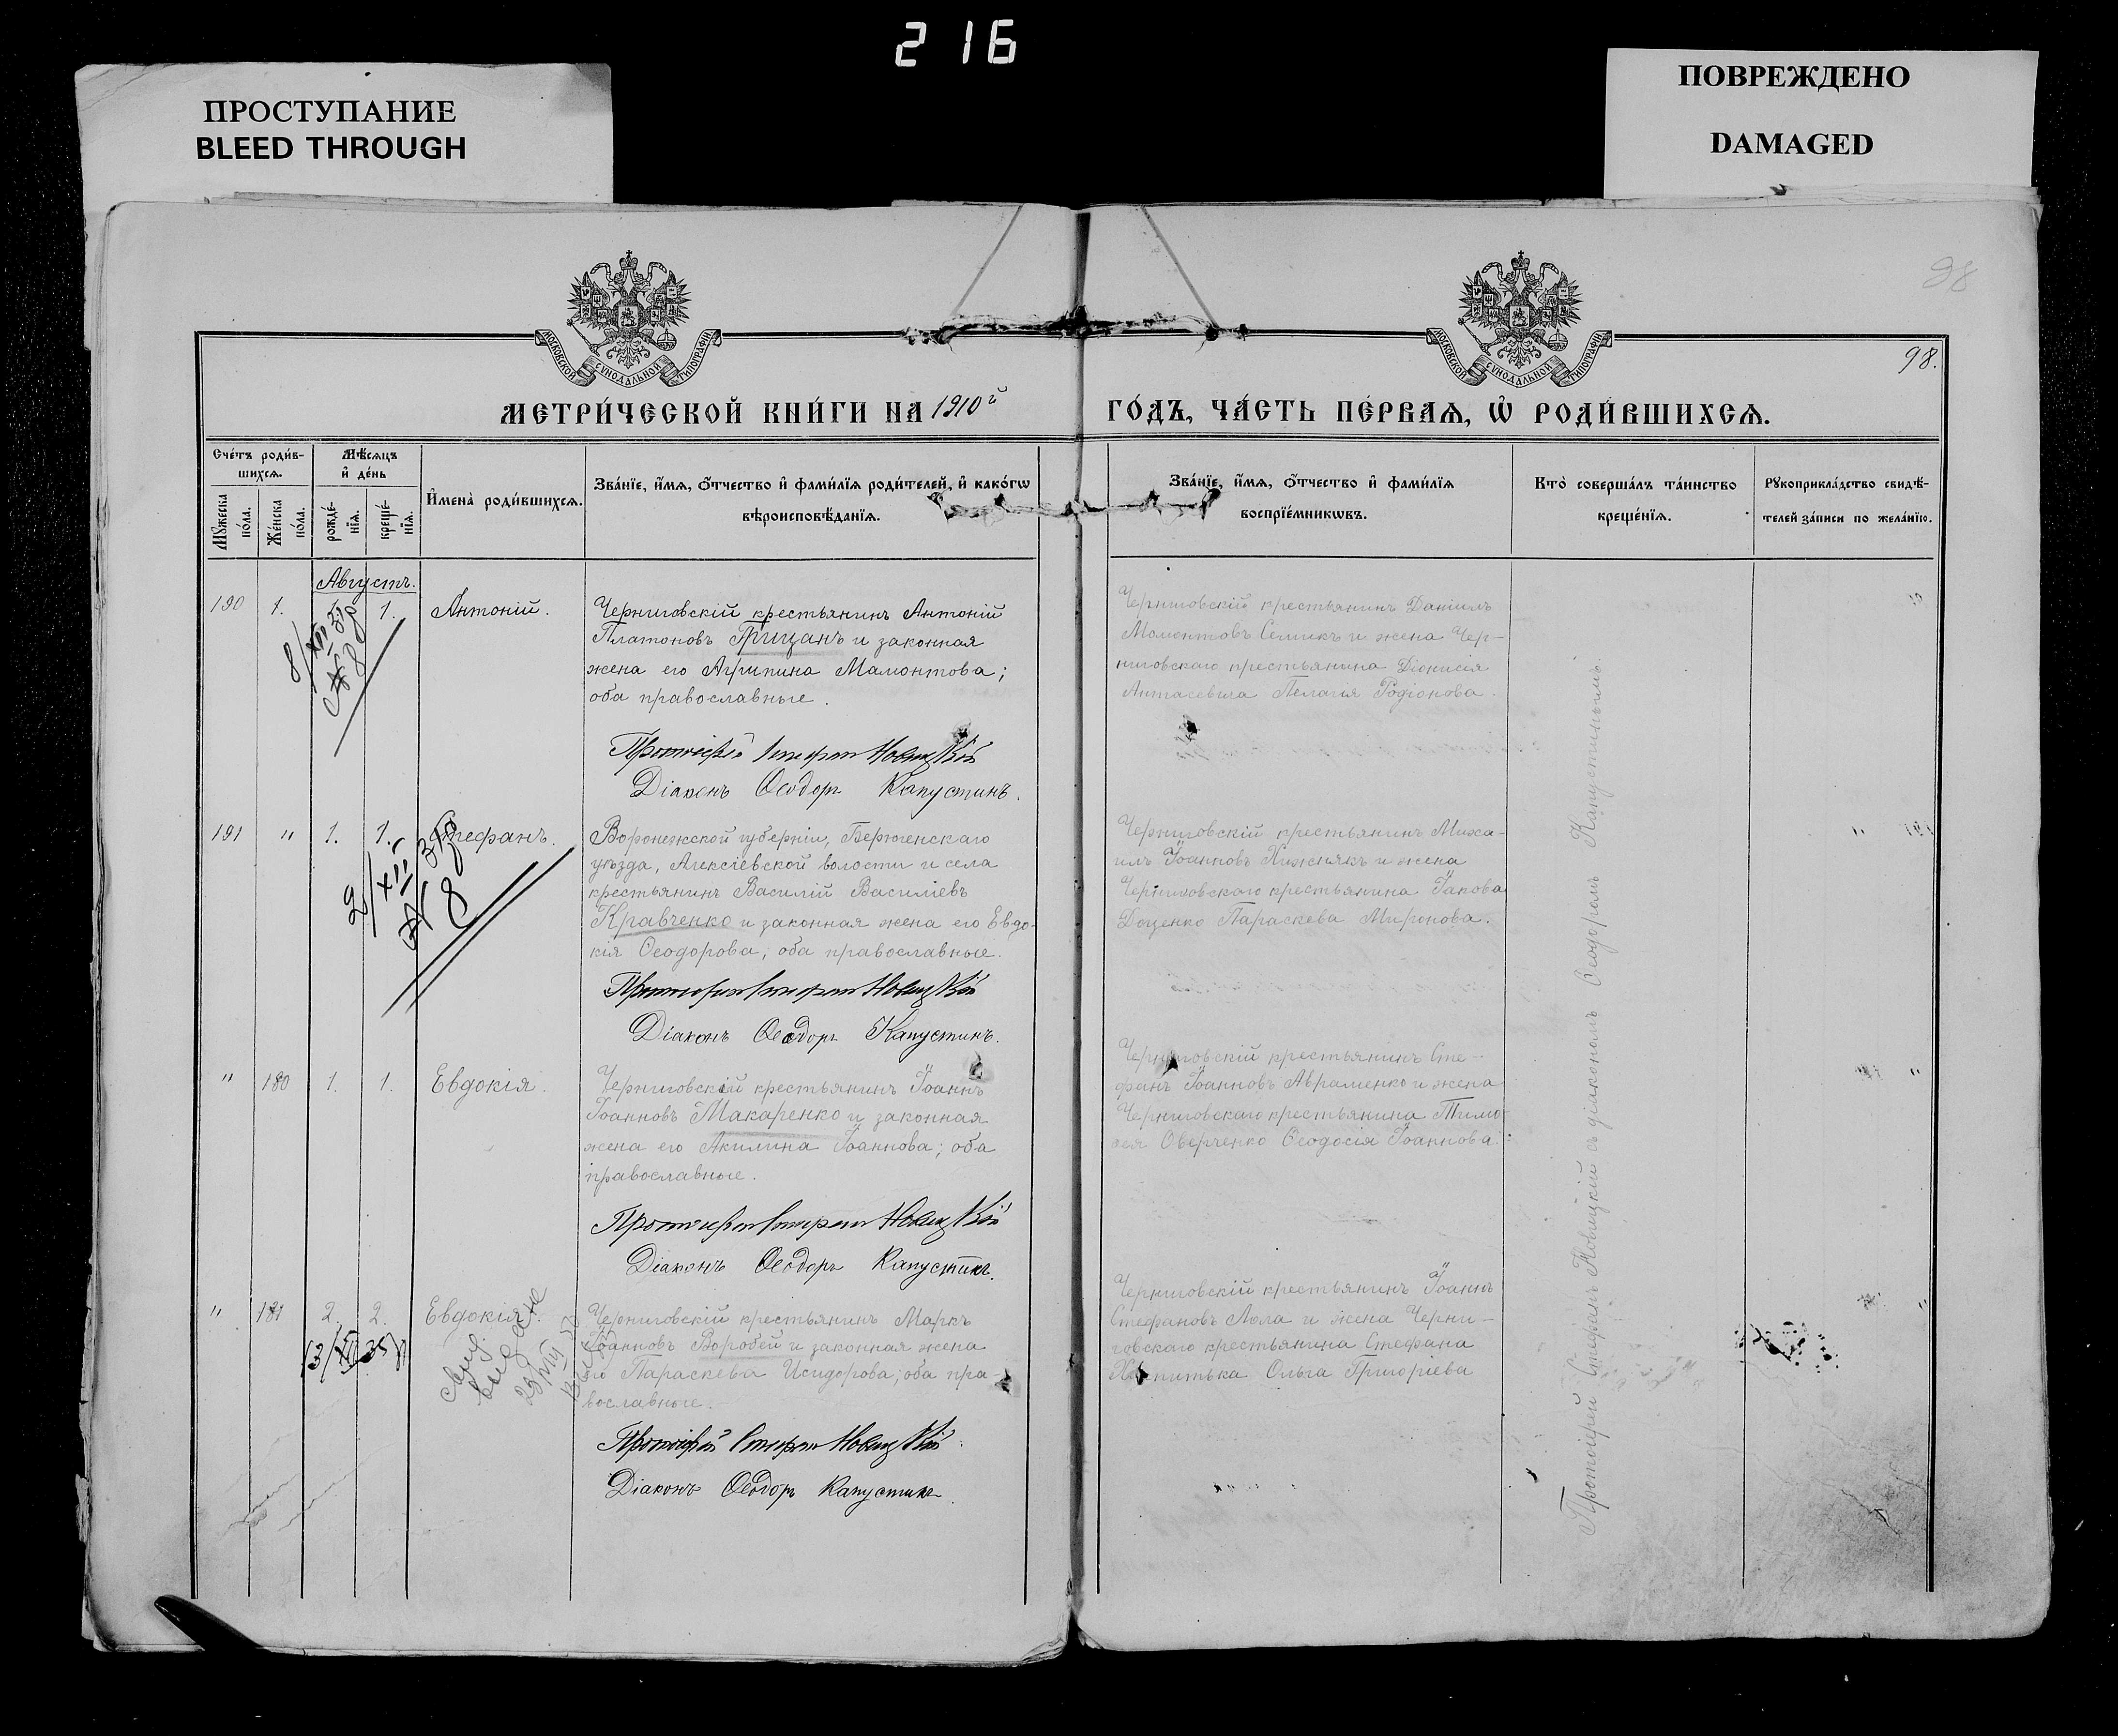 216
ПРОСТУПАНИЕ
BLEED THROUGH
ПОВРЕЖДЕНО
DAMAGED
98
98.
МОСКОВСКОЙ СѴНОДАЛЬНОЙ ТИПОГРАФІИ
МОСКОВСКОЙ СѴНОДАЛЬНОЙ ТИПОГРАФІИ
МЕТРИ́ЧЕСКОЙ КНИ́ГИ НА 1910й ГО́ДЪ, ЧА́СТЬ ПЕ́РВАѦ, Ѿ РОДИ́ВШИХСѦ.
Сче́тъ роди́в-
шихсѧ.
Мꙋжеска по́ла.
Же́нска по́ла.
Мѣ́сѧцъ
и҆ де́нь
рожде́-
нїѧ.
креще́-
нїѧ.
И҆мена̀ роди́вшихсѧ.
Зва́нїе, и҆́мѧ, ѻ҆́тчество и҆ фами́лїѧ роди́телей, и҆ како́гѡ
вѣроисповѣ́данїѧ.
Зва́нїе, и҆́мѧ, ѻ҆́тчество и҆ фами́лїѧ
воспрїе́мникѡвъ.
Кто̀ соверша́лъ та́инство
креще́нїѧ.
Рꙋкоприкла́дство свидѣ́-
телей за́писи по жела́нїю.
Августъ.
190 1. 1. Антоній.
8/XII 35 № 8
Черниговскій крестьянинъ Антоній
Платоновъ Грицанъ и законная
жена его Агрипина Мамонтова;
оба православные.
Протоіерей Стефанъ Новицкій
Діаконъ Ѳеодоръ Капустинъ.
Черниговскій крестьянинъ Даніилъ
Момонтовъ Семикъ и жена Чер-
ниговскаго крестьянина Діонисія
Антасевича Пелагія Родіонова.
191 " 1. 1. Стефанъ.
2/XII 37 № 8
Воронежской губерніи, Бирюченскаго
уѣзда, Алексіевской волости и села
крестьянинъ Василій Василіевъ
Кравченко и законная жена его Евдо-
кія Ѳеодорова, оба православные.
Протоіерей Стефанъ Новицкій
Діаконъ Ѳеодоръ Капустинъ.
Черниговскій крестьянинъ Миха-
илъ Іоанновъ Хижнякъ и жена
Черниговскаго крестьянина Іакова
Доценко Параскева Миронова.
" 180 1. 1. Евдокія.
Черниговскій крестьянинъ Іоаннъ
Іоанновъ Макаренко и законная
жена его Акилина Іоаннова; оба
православные.
Протоіерей Стефанъ Новицкій
Діаконъ Ѳеодоръ Капустинъ.
Черниговскій крестьянинъ Сте-
фанъ Іоанновъ Авраменко и жена
Черниговскаго крестьянина Тимо-
ѳея Оверченко Ѳеодосія Іоаннова.
" 181 2. 2. Евдокія.
Черниговскій крестьянинъ Маркъ
Іоанновъ Воробей и законная жена
его Параскева Исидорова; оба пра-
вославные.
Протоіерей Стефанъ Новицкій.
Діаконъ Ѳеодоръ Капустинъ.
Черниговскій крестьянинъ Іоаннъ
Стефановъ Лола и жена Черни-
говскаго крестьянина Стефана
Ольга Григоріева
Протоіерей Стефанъ Новицкій съ діакономъ Ѳеодоромъ Капустинымъ.